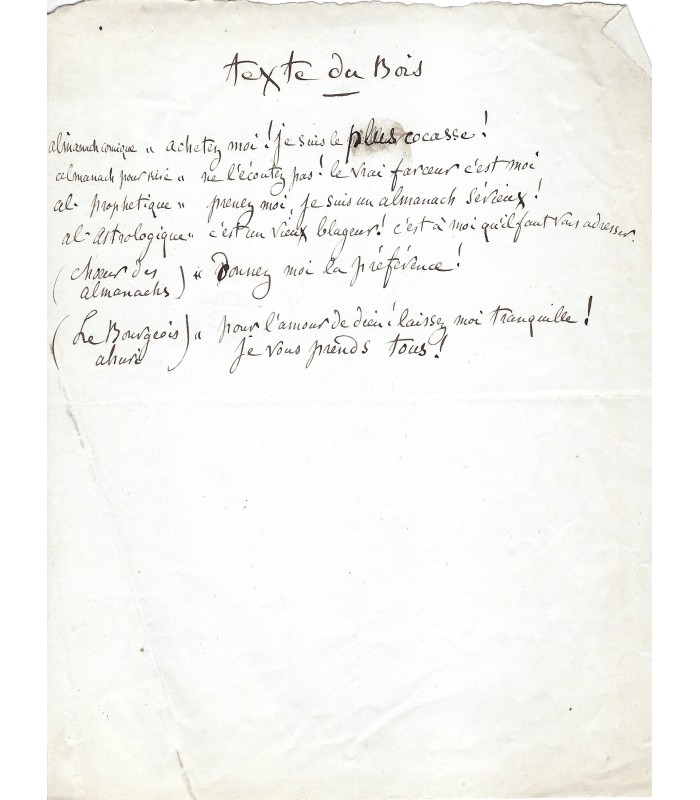 texte du Bois
almanach comique " achetez moi ! je suis le plus cocasse !
almanach pour rire " ne l'écoutez pas ! le vrai farceur c'est moi
al- prophetique " prenez moi, je suis un almanach sérieux !
al- astrologique " c'est un vieux blageur ! c'est à moi qu'il faut vous adresser.
(chœur des " Donnez moi la préférence !
almanachs)
(Le Bourgeois " pour l'amour de dieu ! laissez moi tranquille !
ahuri) je vous prends tous !